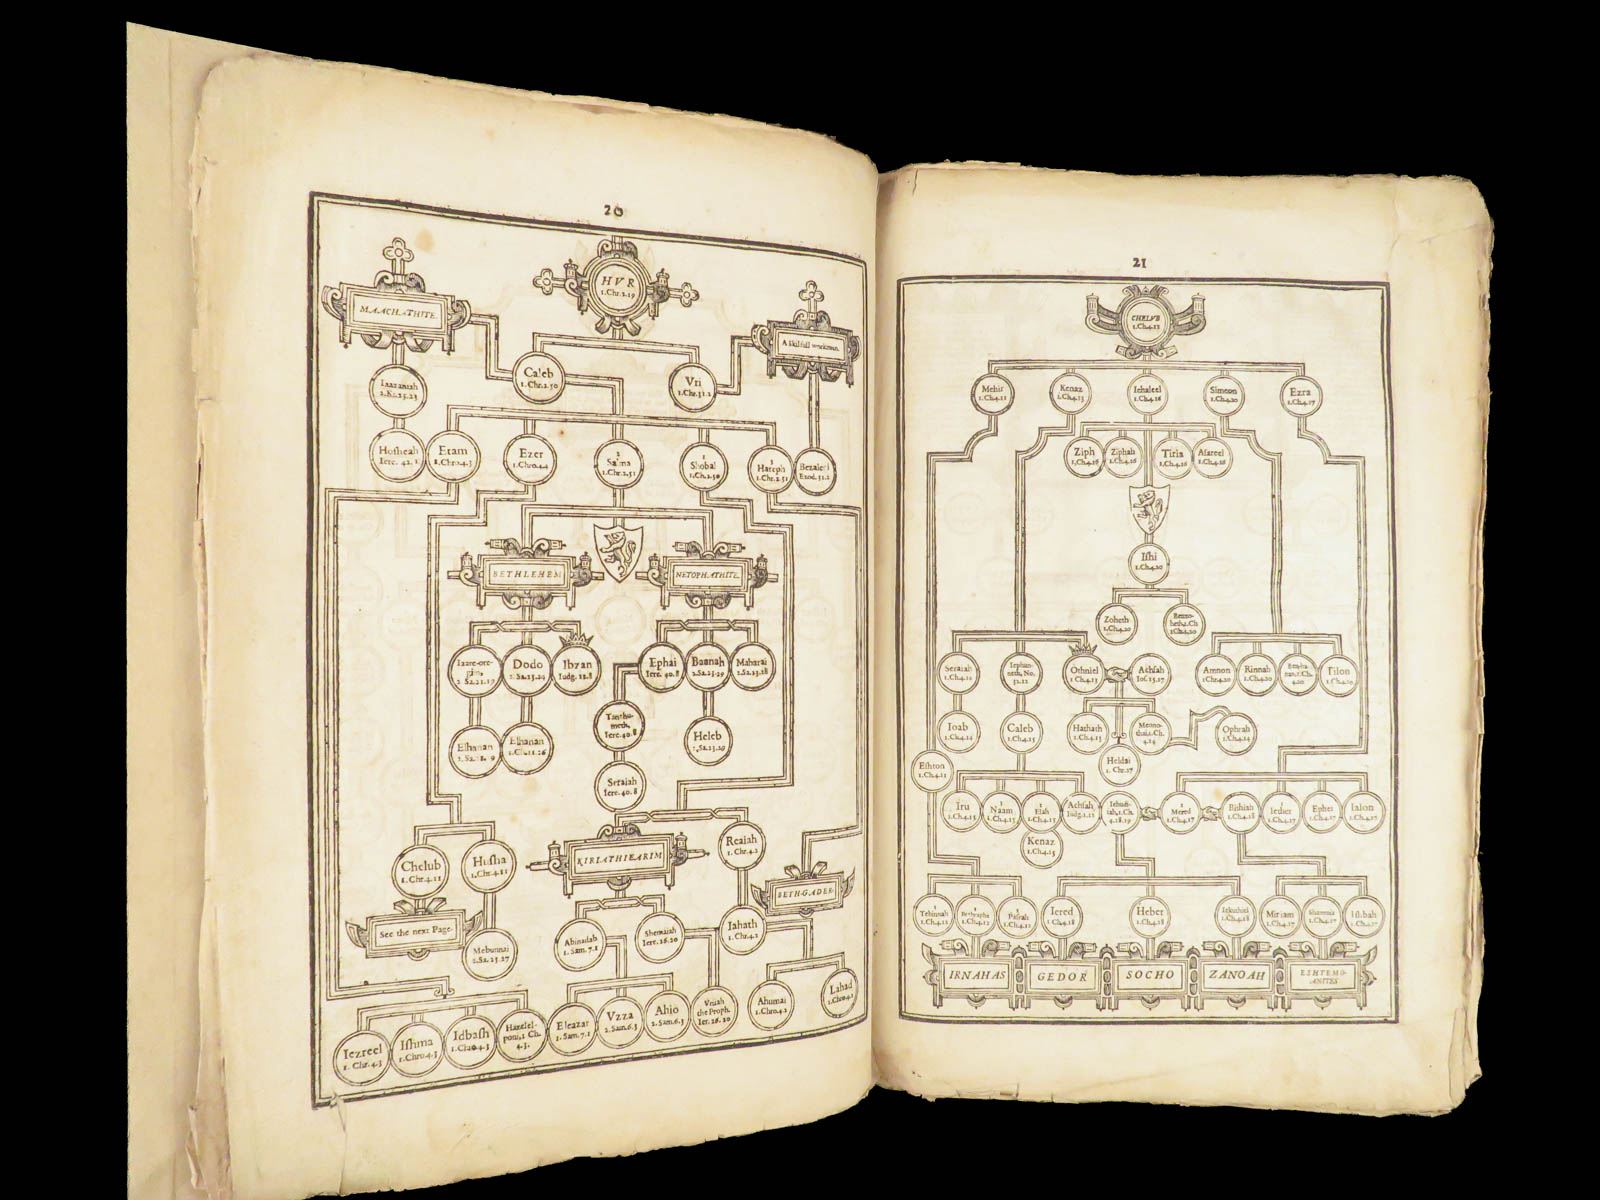 20
HVR
1.Chr.2.19
MAACHATHITE.
A skilfull workman.
Caleb
1.Chr.2.50
Vri
1.Chr.31.2
Iaazaniah
2.Ki.25.23
Hosheah
Iere. 42.1
Etam
1.Chro.4.3
Ezer
1.Chro.4.4
2
Salma
1.Chr.2.51
1
Shobal
1.Ch.2.50
3
Hareph
1.Chr.2.51
Bezaleel
Exod.31.2
BETHLEHEM
NETOPHATHITE.
Iaare-ore-
gim,
2.Sa.21.19
Dodo
2.Sa.23.29
Ibzan
Iudg.12.8
Ephai
Iere.40.8
Baanah
2.Sa.23.29
Maharai
2.Sa.23.28
Tanhu-
meth,
Iere.40.8
Elhanan
Elhanan
Heleb
2.Sa.23.29
Seraiah
Iere.40.8
KIRIATHIEARIM
Reaiah
1.Chr.4.2
Chelub
1.Chr.4.11
Husha
1.Chr.4.11
BETH-GADER.
See the next Page.
Mebunnai
2.Sa.23.27
Abinadab
1.Sam.7.1
Shemaiah
Iere.26.20
Iahath
1.Chr.4.2
Iezreel
1.Chr.4.3
Ishma
1.Chro.4.3
Idbash
1.Chro.4.3
Hazelel-
poni,1 Ch.
4.3.
Eleazar
1.Sam.7.1
Vzza
2.Sam.6.3
Ahio
2.Sam.6.3
Vriah
the Proph.
Ier.26.20
Ahumai
1.Chro.4.2
Lahad
1.Chro.4.2
21
CHELVB
1.Ch.4.11
Mehir
1.Ch.4.11
Kenaz
1.Ch.4.13
Iehaleel
1.Ch.4.16
Simeon
1.Ch.4.20
Ezra
1.Ch.4.17
Ziph
1.Ch.4.16
Ziphah
1.Ch.4.16
Tiria
1.Ch.4.16
Asareel
1.Ch.4.16
Ishi
1.Ch.4.20
Zoheth
1.Ch.4.20
Benzo-
heth,1.Ch
4.20
Seraiah
1.Ch.4.14
Iephun-
neth, No.
32.12
Othniel
1.Ch.4.13
Achsah
Ios.15.17
Amnon
1.Chr.4.20
Rinnah
1.Ch.4.20
Ben-ha-
nan,1.Ch.
4.20
Tilon
1.Ch.4.20
Ioab
1.Ch.4.14
Caleb
1.Ch.4.15
Hathath
1.Ch.4.13
Meono-
thai,1.Ch.
4.14
Ophrah
1.Ch.4.14
Eshton
1.Ch.4.11
Heldai
1. Chr.27
Iru
1.Ch.4.15
Naam
1.Ch.4.15
Elah
1.Ch.4.15
Achsah
Iudg.1.12
Iehudi-
iah,1.Ch.
4.18.19
Mered
1.Ch.4.17
Bithiah
1.Ch.4.18
Iether
1.Ch.4.17
Epher
1.Ch.4.17
Ialon
1.Ch.4.17
Kenaz
1.Ch.4.15
Tehinnah
1.Ch.4.12
Bethrapha
1.Ch.4.12
Paseah
1.Ch.4.12
Iered
1.Ch.4.18
Heber
1.Ch.4.18
Iekuthiel
1.Ch.4.18
Miriam
1.Ch.4.17
Shammia
1.Ch.4.17
Ishbah
1.Ch.4.17
IRNAHAS
GEDOR
SOCHO
ZANOAH
ESHTEMO-
ANITES